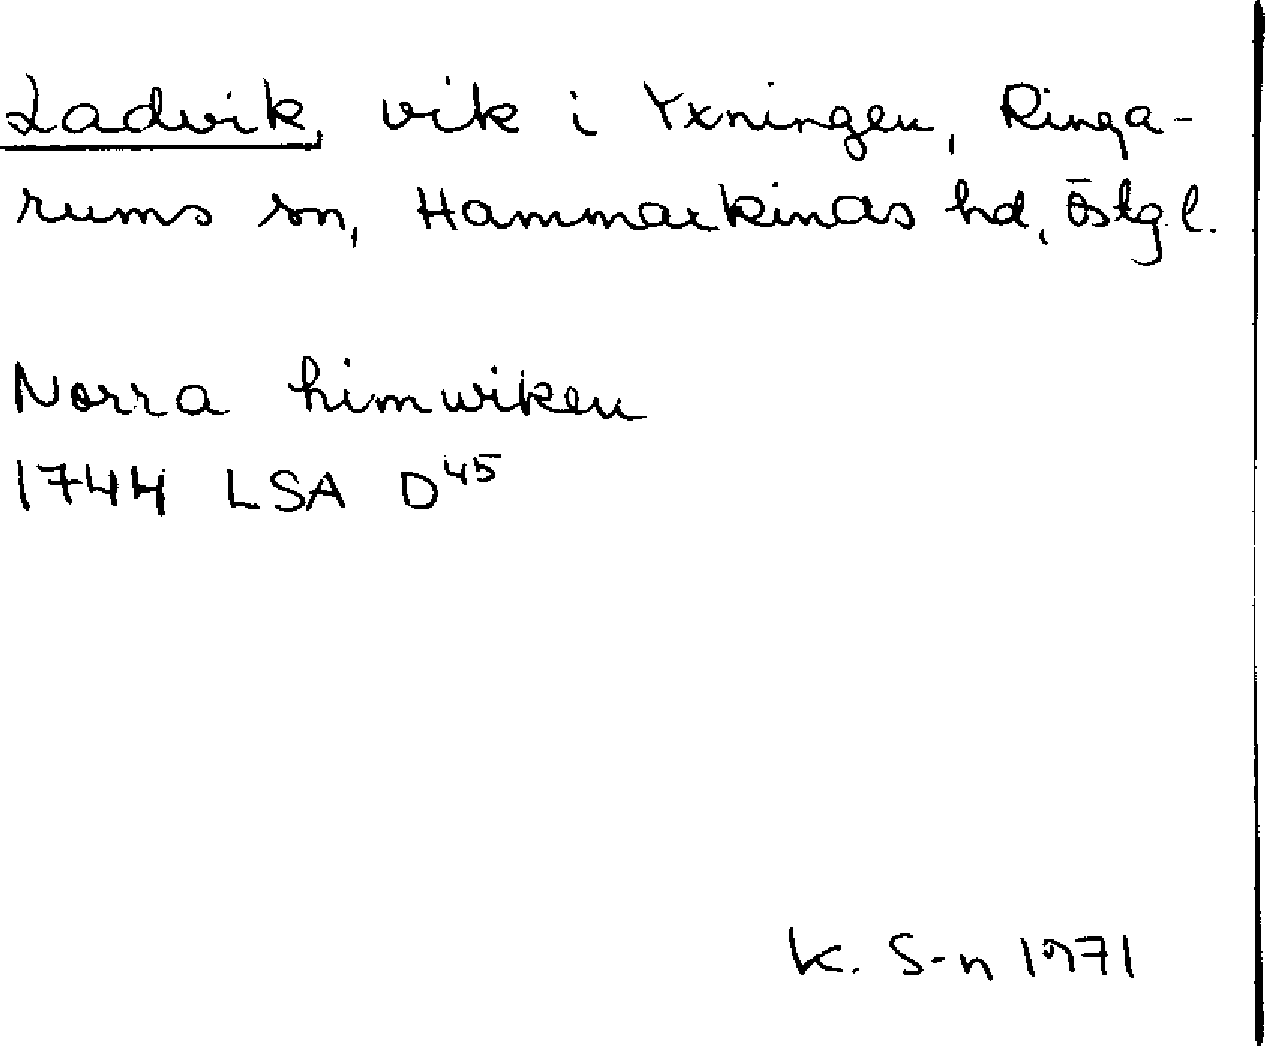 Ladvik, vik i Yxningen, Ringa-
rums sn, Hammarkinds hd, Östg.l.
Norra himwiken
1744 LSA D45
K. S-n 1971